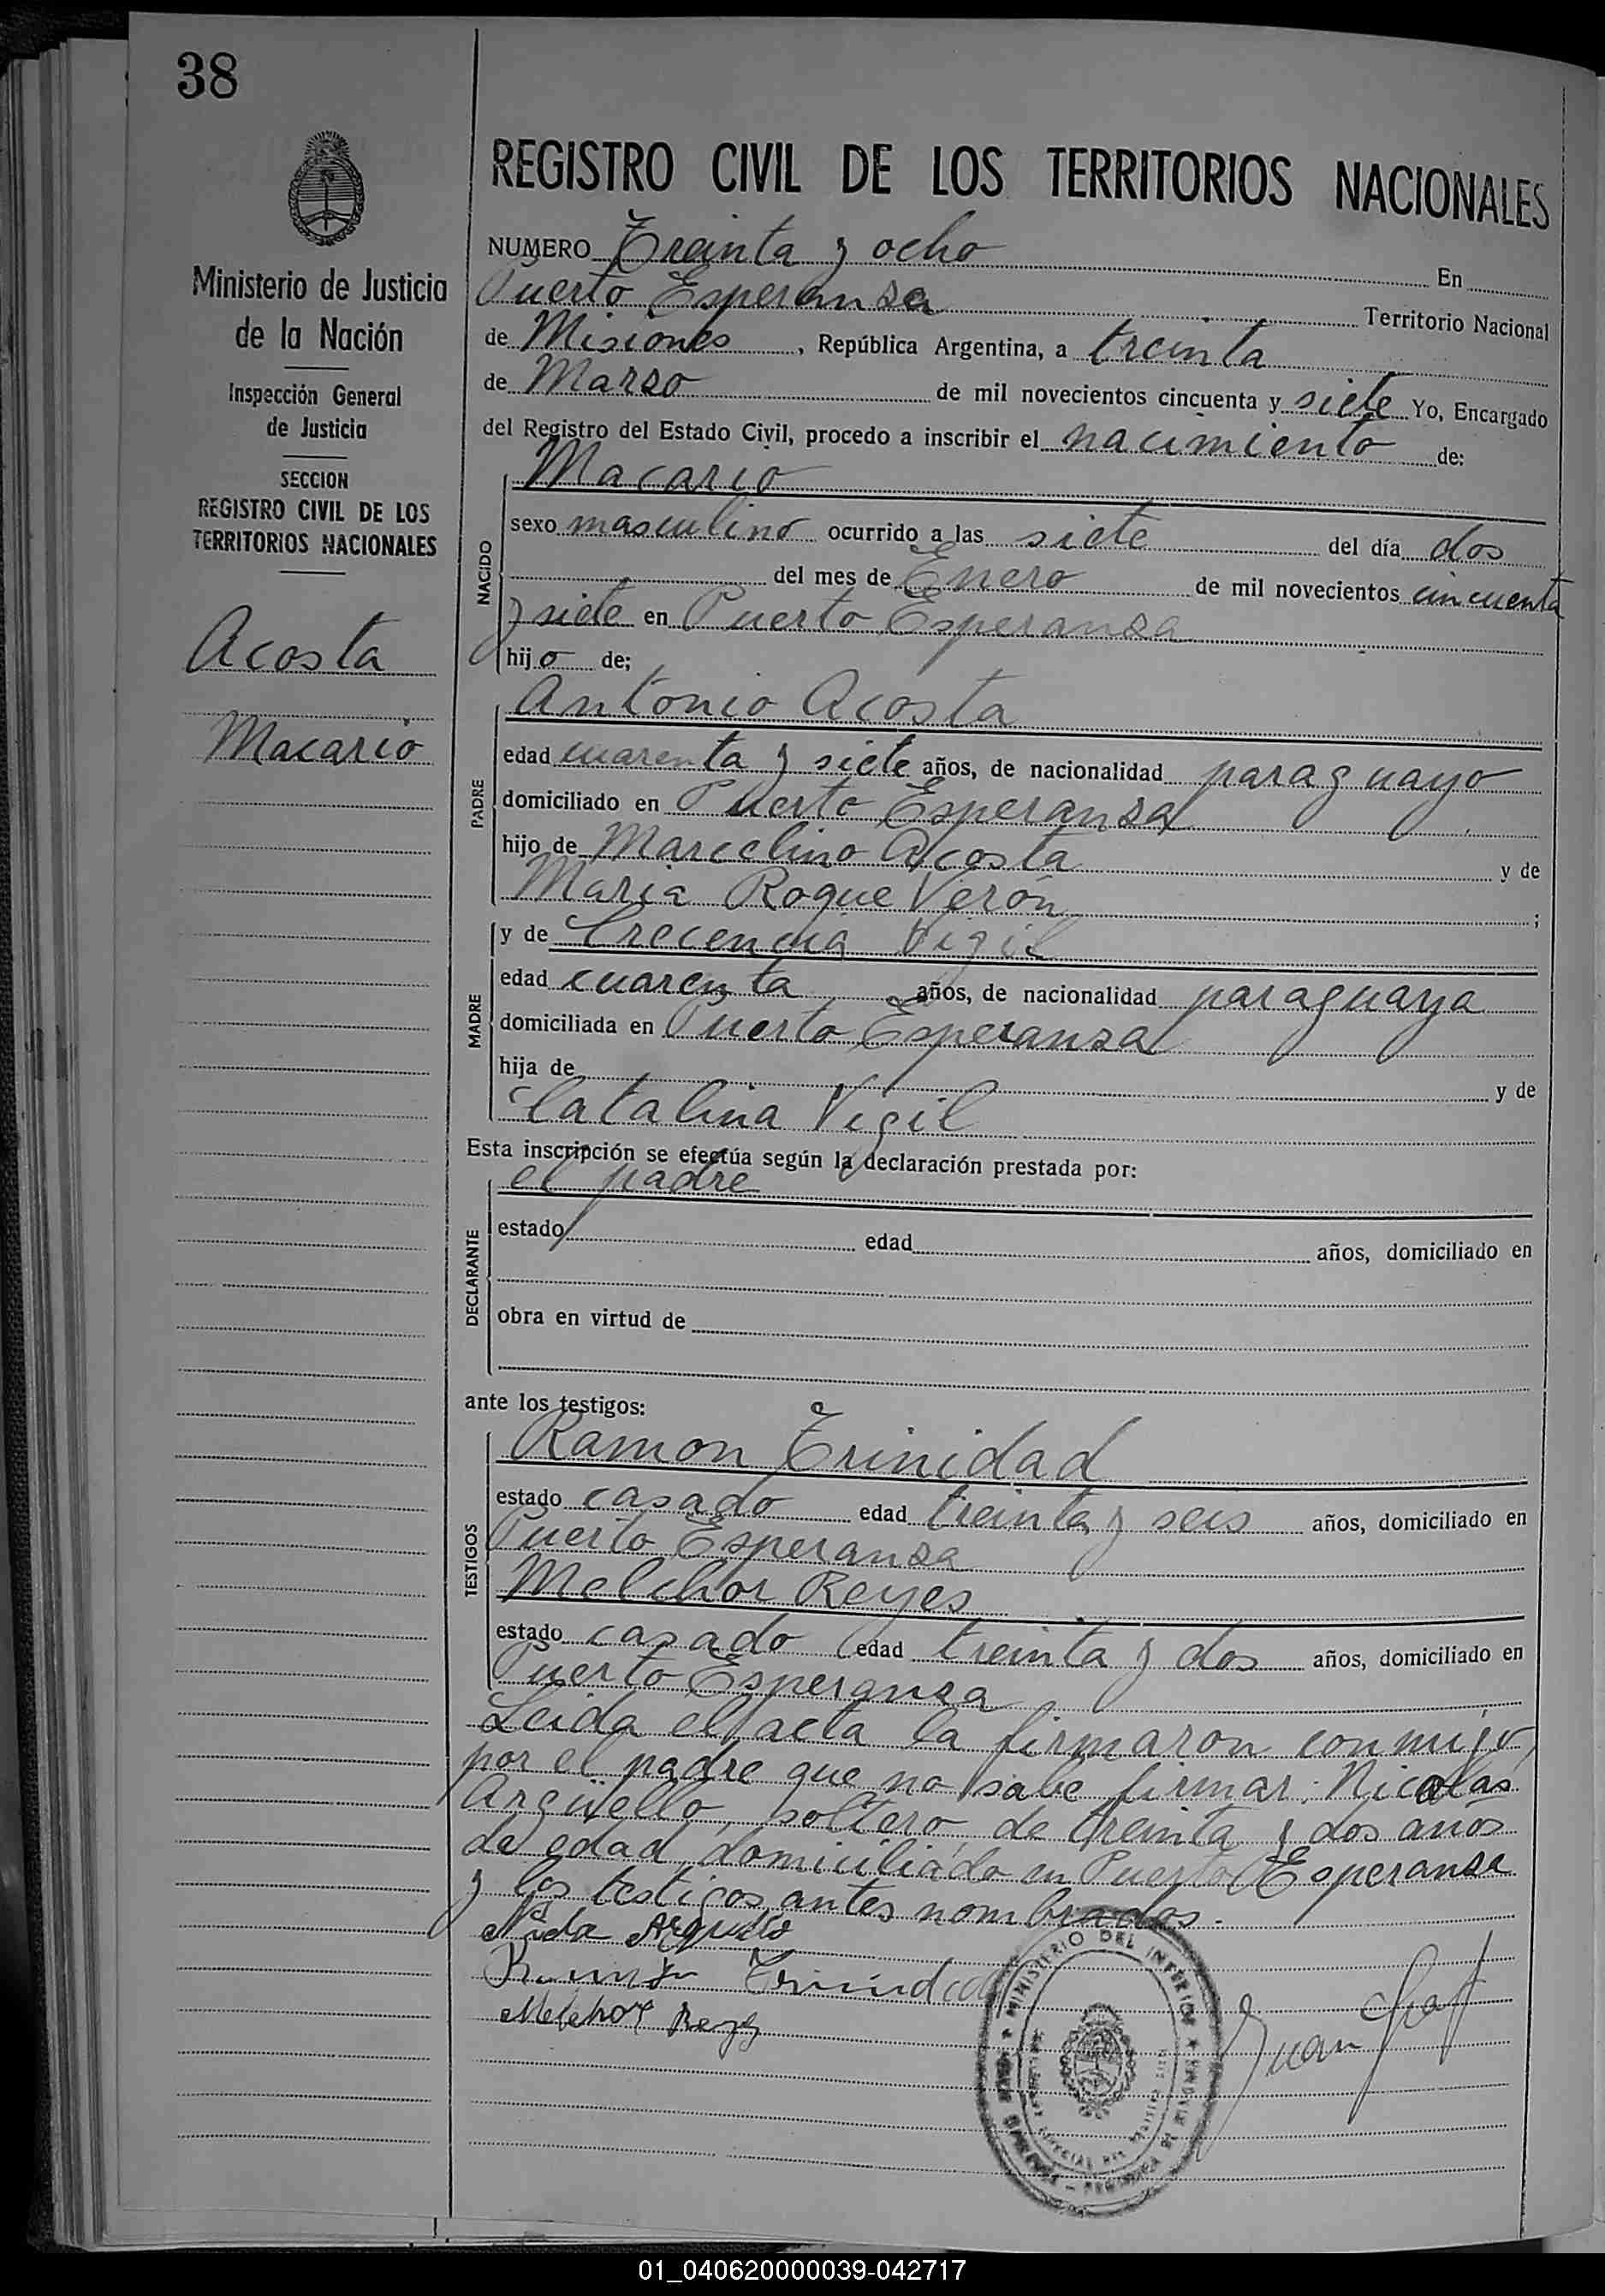 38
Ministerio de Justicia
de la Nación
Inspección General
de Justicia
SECCION
REGISTRO CIVIL DE LOS
TERRITORIOS NACIONALES
Acosta
Macario
REGISTRO CIVIL DE LOS TERRITORIOS NACIONALES
NUMERO Treinta y ocho En
Puerto Esperanza Territorio Nacional
de Misiones, República Argentina, a treinta
de Marzo de mil novecientos cincuenta y siete Yo, Encargado
del Registro del Estado Civil, procedo a inscribir el nacimiento de:
Macario
NACIDO
sexo masculino ocurrido a las siete del día dos
del mes de Enero de mil novecientos cincuenta
y siete en Puerto Esperanza
hijo de;
Antonio Acosta
PADRE
edad cuarenta y siete años, de nacionalidad paraguayo
domiciliado en Puerto Esperanza
hijo de Marcelino Acosta y de
Maria Roque Verón ;
y de Crecencia Vigil
MADRE
edad cuarenta años, de nacionalidad paraguaya
domiciliada en Puerto Esperanza
hija de y de
Catalina Vigil
Esta inscripción se efectúa según la declaración prestada por:
el padre
DECLARANTE
estado edad años, domiciliado en
obra en virtud de
ante los testigos:
Ramon Trinidad
TESTIGOS
estado casado edad treinta y seis años, domiciliado en
Puerto Esperanza
Melchor Reyes
estado casado edad treinta y dos años, domiciliado en
Puerto Esperanza
Leida el acta la firmaron conmigo,
por el padre que no sabe firmar: Nicolas
Argüello, soltero de treinta y dos años
de edad, domiciliado en Puerto Esperanza
y los testigos antes nombrados.
Trinidad
Melchor Reyes
MINISTERIO DEL INTERIOR
Juan
01_040620000039-042717